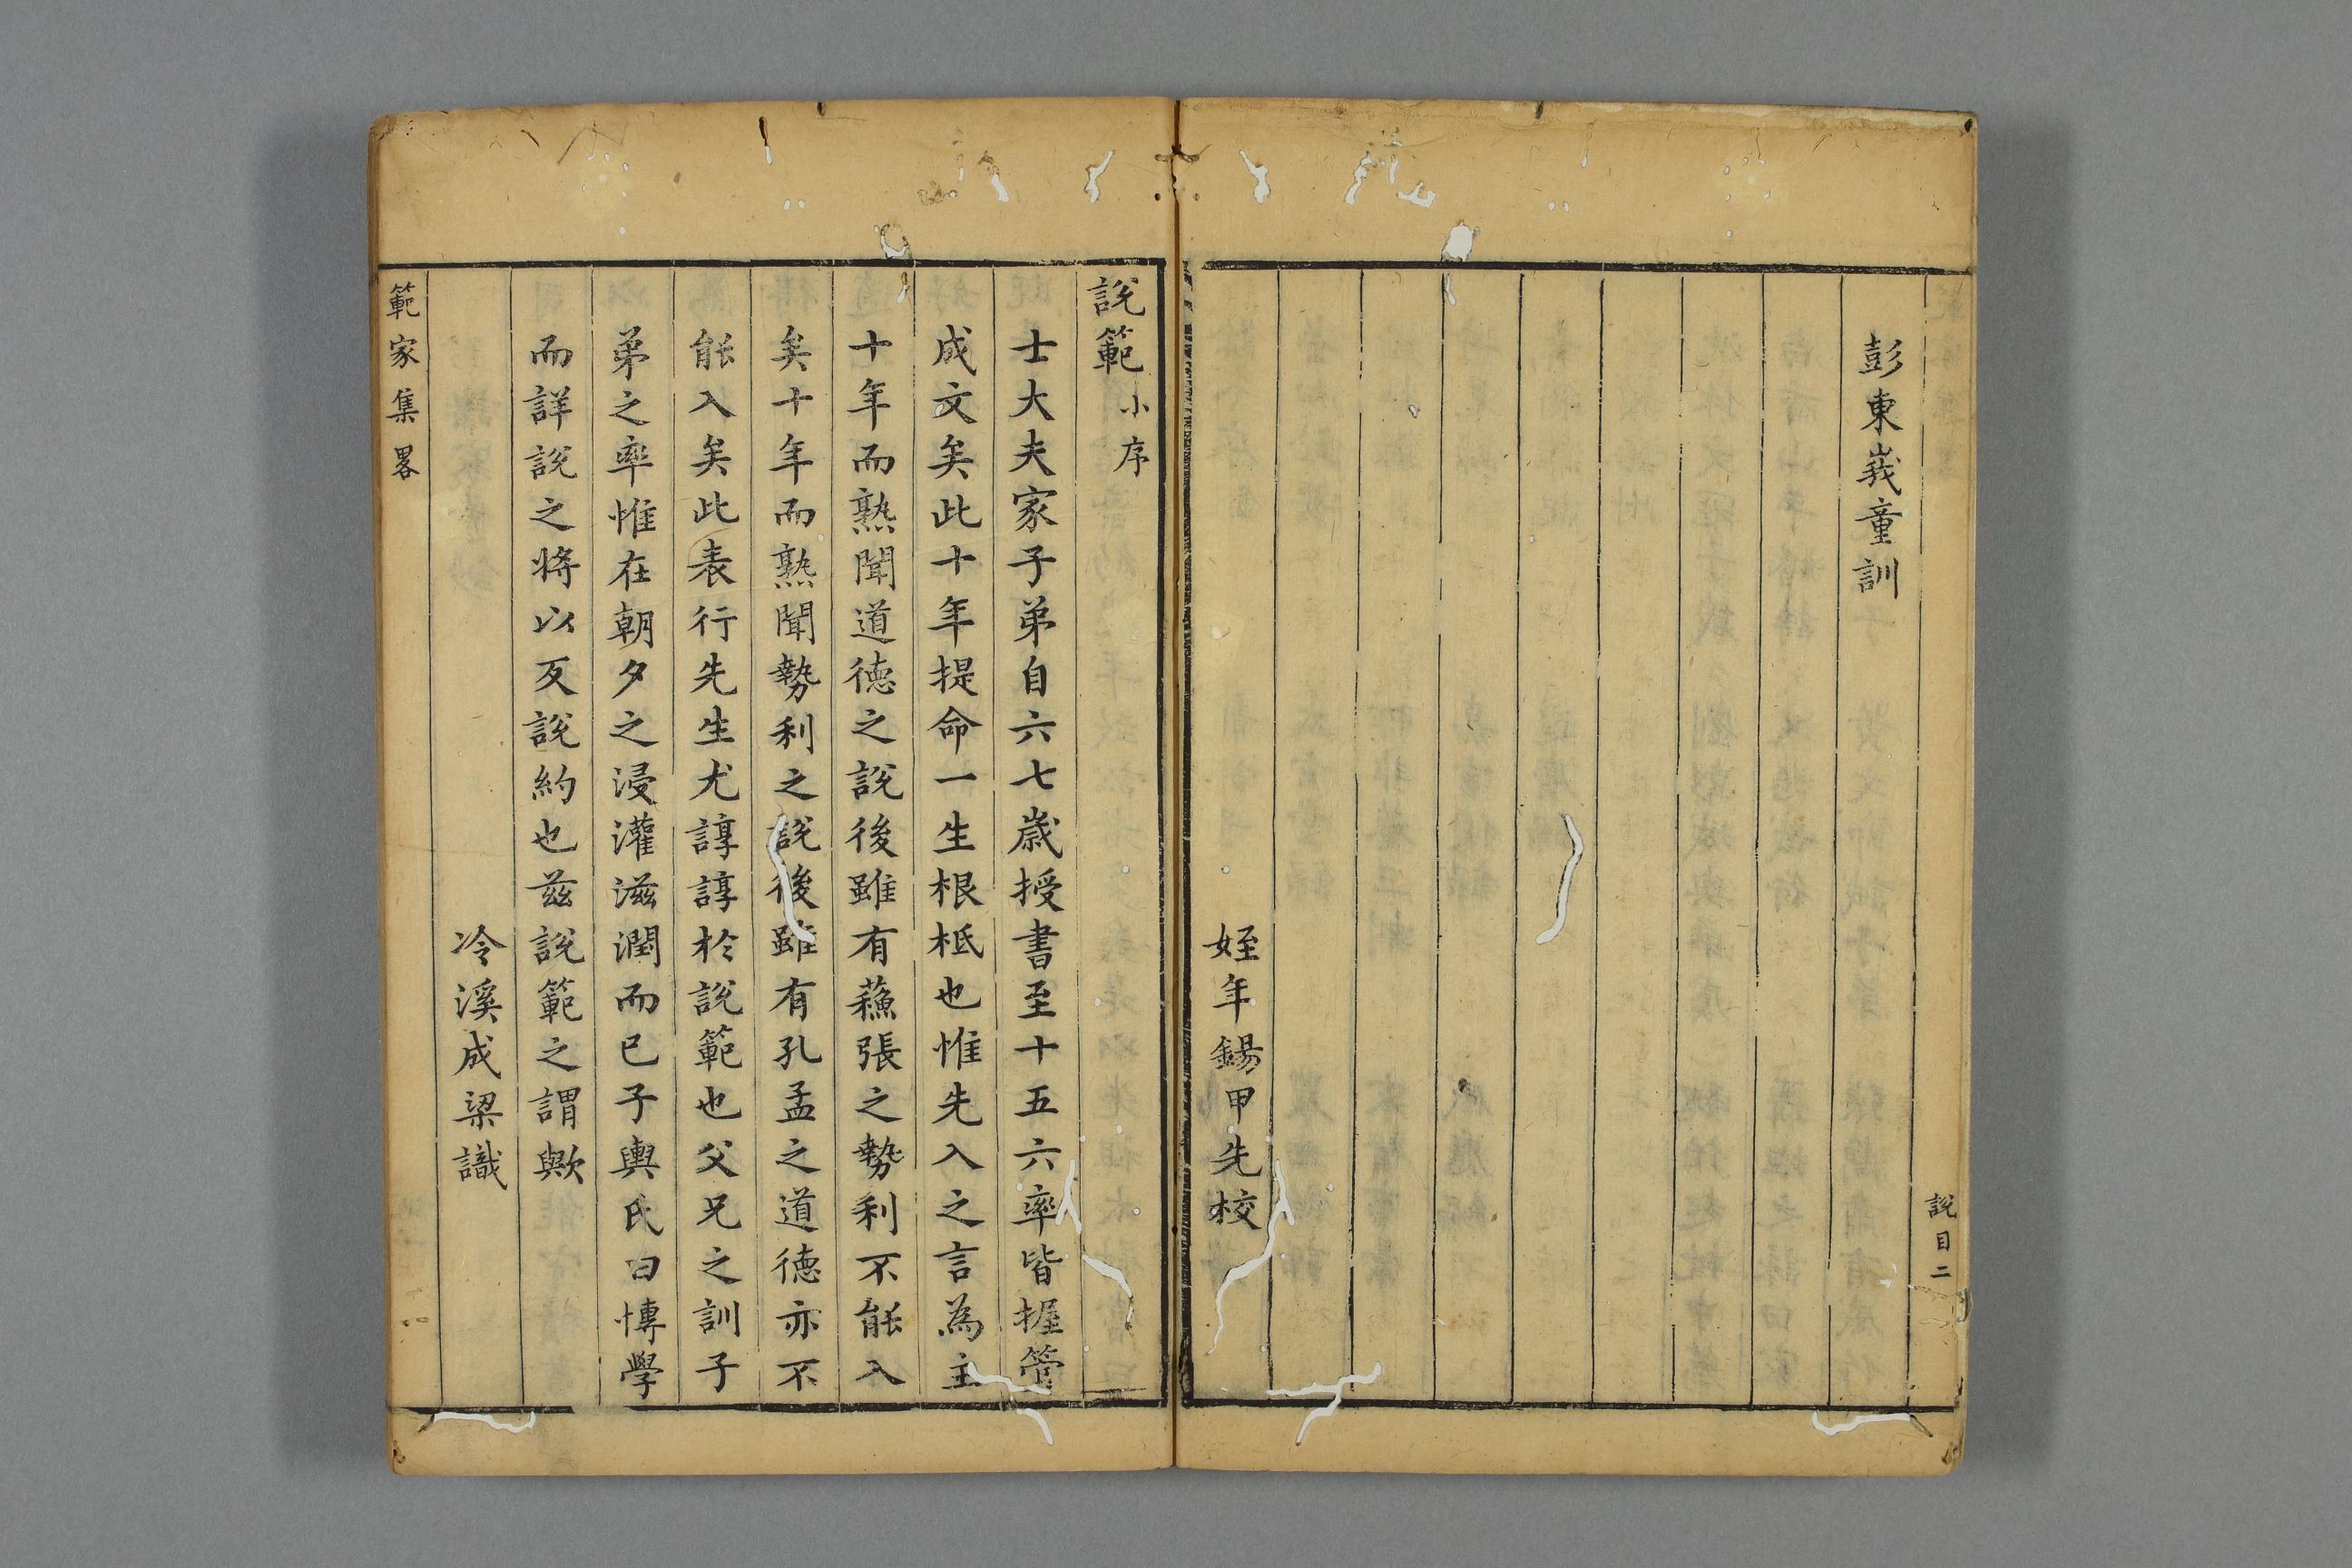 彭東峩童訓
姪年錫甲先校
說目二
說範小序
士大夫家子弟自六七歲授書至十五六率皆握管
成文矣此十年提命一生根柢也惟先入之言為主
十年而熟聞道德之說後雖有蘓張之勢利不能入
矣十年而熟聞勢利之說後雖有孔孟之道德亦不
能入矣此表行先生尤諄諄於說範也父兄之訓子
弟之率惟在朝夕之浸灌滋潤而已子輿氏曰博學
而詳說之將以反說約也茲說範之謂歟
冷溪成梁識
範家集畧